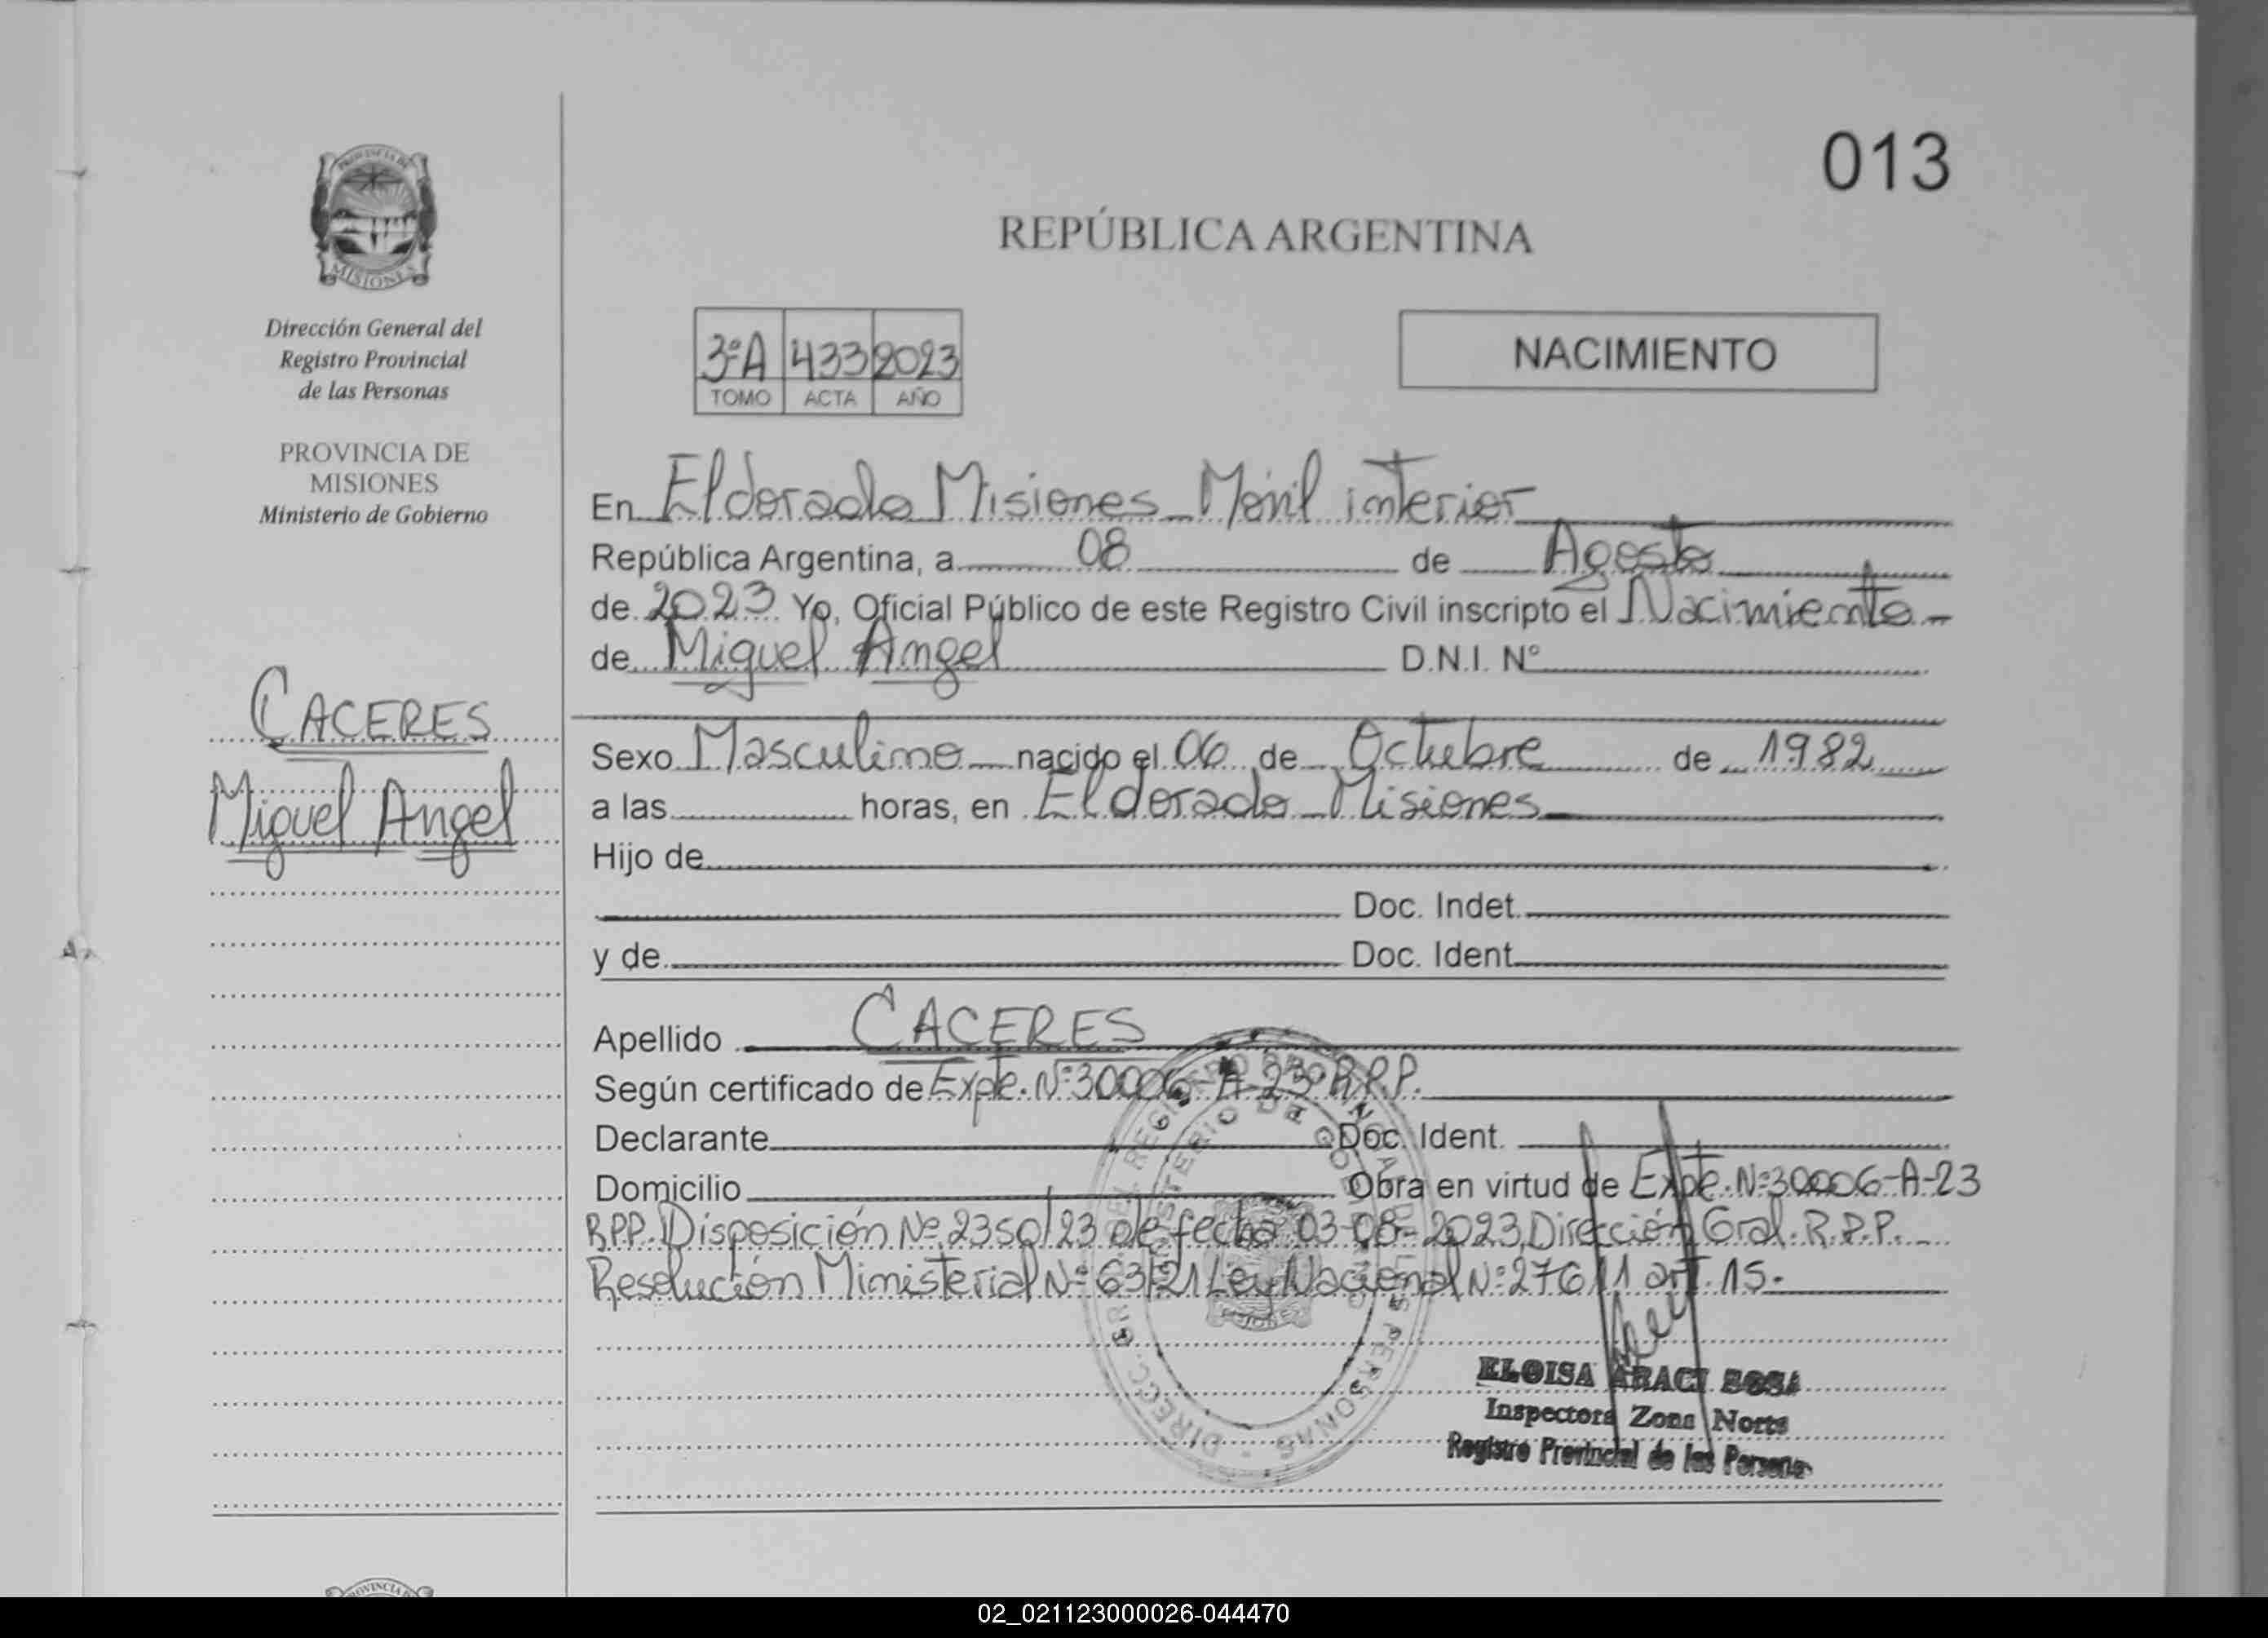 013
REPÚBLICA ARGENTINA
PROVINCIA DE
MISIONES
Dirección General del
Registro Provincial
de las Personas
PROVINCIA DE
MISIONES
Ministerio de Gobierno
CACERES
Miguel Angel
3ºA 433 2023
TOMO ACTA AÑO
NACIMIENTO
En Eldorado Misiones Móvil interior
República Argentina, a 08 de Agosto
de 2023 Yo, Oficial Público de este Registro Civil inscripto el Nacimiento
de Miguel Angel D.N.I. Nº
Sexo Masculino nacido el 06 de Octubre de 1982
a las horas, en Eldorado Misiones
Hijo de
Doc. Indet.
y de Doc. Ident.
Apellido CACERES
Según certificado de Expte. Nº 30006-A-23 R.P.P.
Declarante Doc. Ident.
Domicilio Obra en virtud de Expte. Nº 30006-A-23
RPP. Disposición Nº 2350/23 de fecha 03-08-2023 Dirección Gral. R.P.P.
Resolución Ministerial Nº 63/21 Ley Nacional Nº 27611 art. 15.
DIRECC. GRAL. DEL REGISTRO PROVINCIAL DE LAS PERSONAS
MINISTERIO DE GOBIERNO
ELOISA ARACI SOSA
Inspectora Zona Norte
Registro Provincial de las Persona
02_021123000026-044470